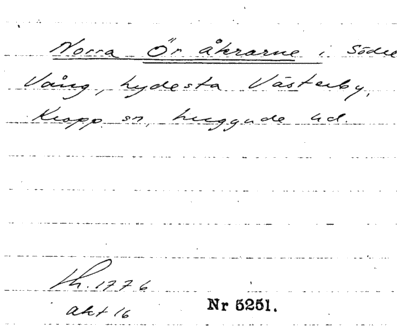 Norra Ör åkrarne i Södre
Vång, Lydesta Västerby,
Kropp sn, Luggude hd.
Lh. 1776
akt 16
Nr 5251.